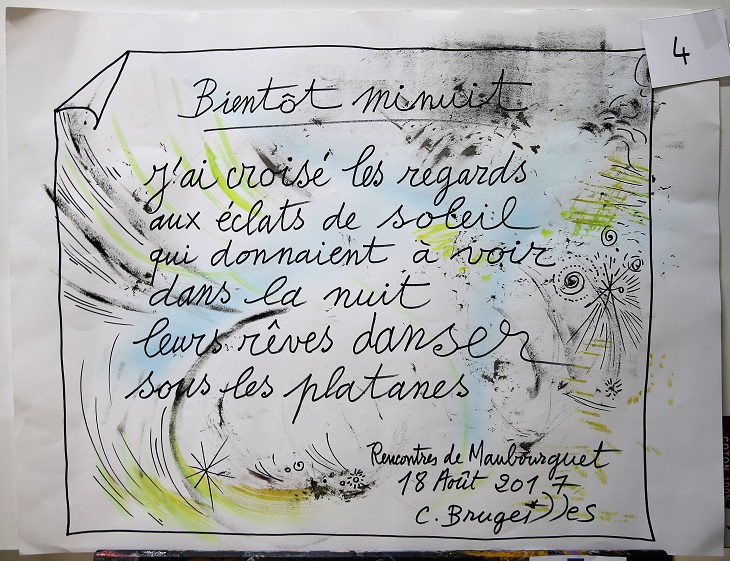 4
Bientôt minuit
j'ai croisé les regards
aux éclats de soleil
qui donnaient à voir
dans la nuit
leurs rêves danser
sous les platanes
Rencontres de Maubourguet
18 Août 2017
C. Brugeilles